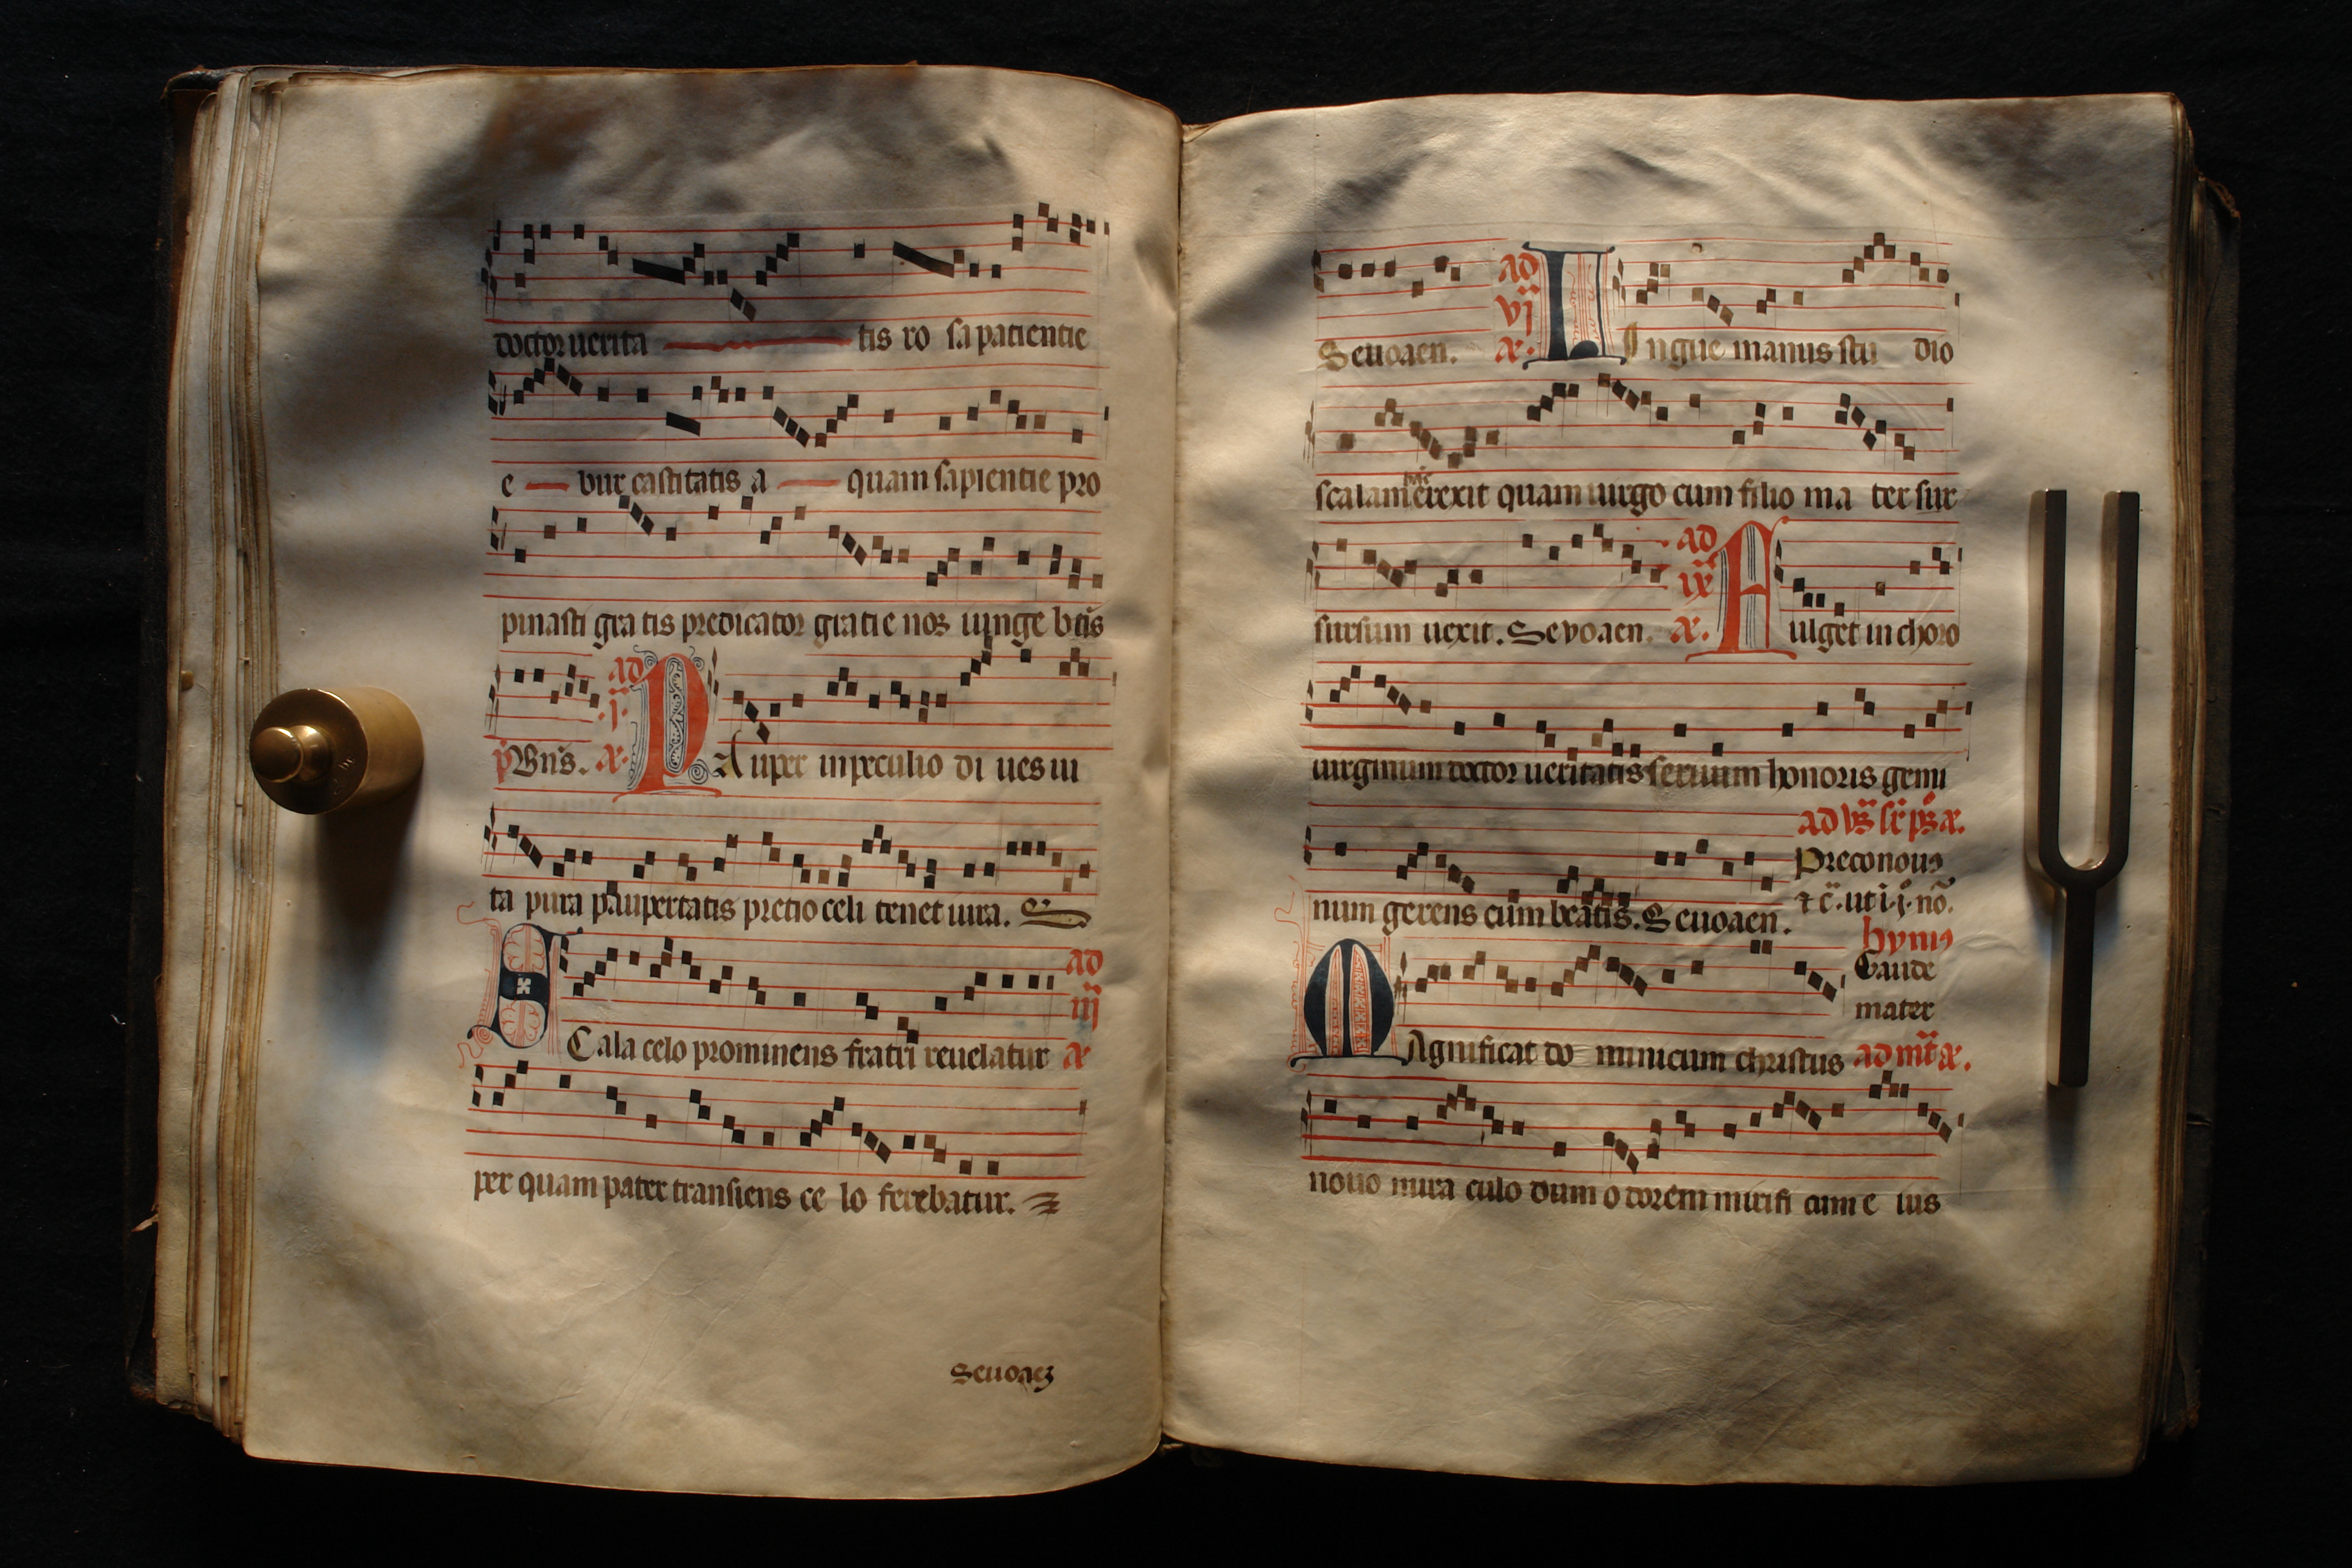 doctor uerita tis ro sa patientie
e bur castitatis a quam sapientie pro
pinasti gra tis predicator gratie nos iunge btis
ad
.j.
p̄ Bn̄s. æ. PAuper in peculio di ues in
ta pura paupertatis pretio celi tenet iura. S
ad
iij
SCala celo prominens fratri reuelatur æ
per quam pater transiens ce lo ferebatur.
Seuoaeȝ
ad
vj
Seuoaen. æ. LIngue manus stu dio
hic
scalam erexit quam uirgo cum filio ma ter sur
ad
ix
sursum uexit. Seuoaen. æ. FUlget in choro
uirginum doctor ueritatis sertum honoris gemi
ad bs̄ sr̄ ps̄ æ.
Preco nouꝯ
num gerens cum beatis. Seuoaen. ⁊ c̄. ut i. j. nō.
hymꝯ
Gaude
mater
MAgnificat do minicum christus ad mt̄ æ.
nouo mira culo dum o dorem mirifi cum e ius